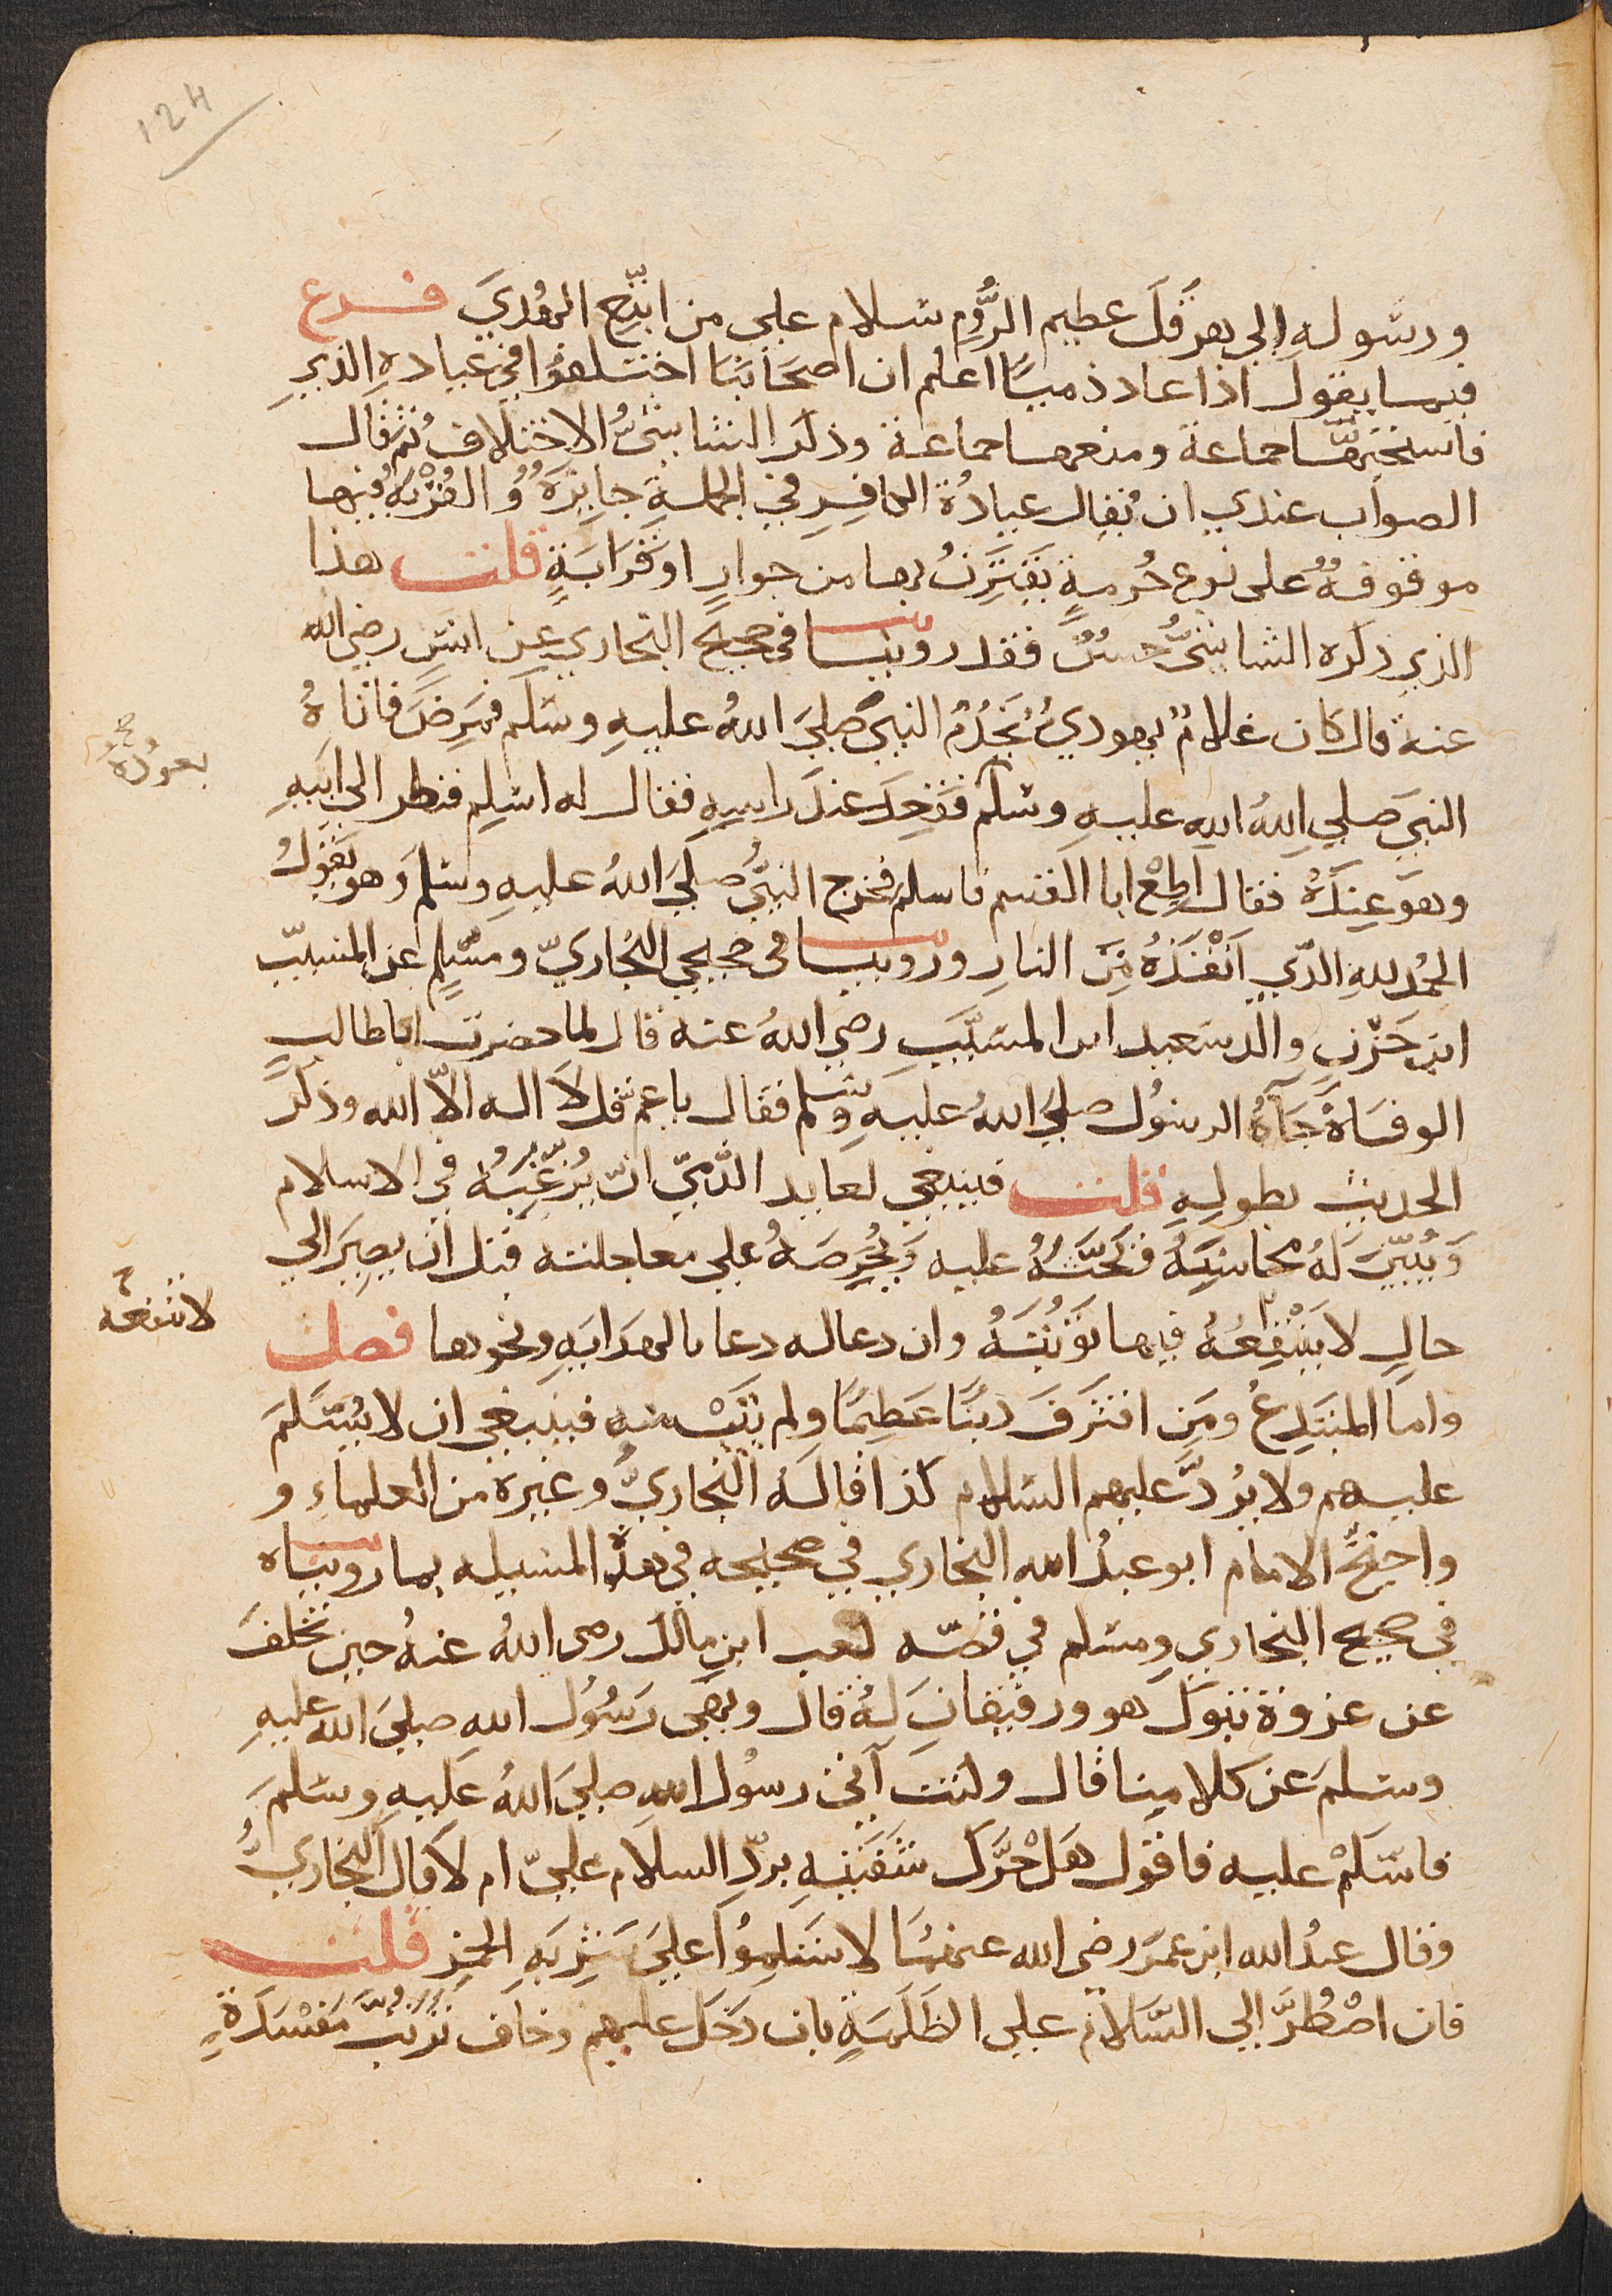 124
ورسوله الى هرقل عظيم الرُّوم سلام على من اتبع الهُدى فرع
فيما يقول اذا عاد ذميًا اعلم ان اصحابَنا اختلفوا في عيادةِ الذمي
فاستحبّها جماعة ومنعها جماعة وذكر الشاشىُّ الاختلافَ ثم قال
الصواب عندي ان يُقال عيادةُ الكافِر في الجملةِ جايزةٌ والقُرْبَةُ فيها
موقوفةٌ على نوع حُرمةٍ يَقترنُ بها من جوارٍ او قَرَابَةٍ قلت هذا
الذي ذكره الشاشىُّ حسنٌ فقد روينا في صحيح البخاري عن انسٍ رضي الله
عنه قال كان غلامٌ يهوديٌ يَخدُمُ النبيَّ صلى اللهُ عليهِ وسلم فمَرِضَ فاتاهُ
يعودُهُ صح
النبيّ صلي اللهُ الله عليهِ وسلم فقعدَ عندَ راسِهِ فقال له اسْلِم فنظر الى ابيهِ
وهو عِندَهُ فقال اطِعْ ابا القسم فاسلم فخرج النبيُّ صلى اللهُ عليهِ وسلمَ وهو يَقولُ
الحمْدُ للهِ الذّي اَنْقَذَهُ مِنَ النارِ وروينا في صحيحي البُخاريّ ومسْلِمٍ عن المسيّب
ابن حَزْنٍ والد سَعيد ابن المسَيَّبِ رضي اللهُ عنه قال لما حضرت ابا طالبٍ
الوفاةُ جَآهُ الرسُول صلى اللهُ عليهِ وسلم فقال يا عم قل لَا اله الّا الله وذكرَ
الحديث بطولِهِ قلت فينبغي لعايد الذّميّ انْ يُرَغِّبَهُ في الاسلام
وَيُبيّنَ لَهُ محاسِنَهُ فَيَحثّهُ عليه وَيُحَرِّضَهُ على معاجلته قبل ان يصِيرَ الى
حالٍ لا يَنْفَعُهُ فيها تَوْبَتَهُ وان دعا له دعا بالهِدَايَهِ ونحوها فصل
لا تنفعه
واما المبتَدِعُ ومَن اقترَفَ ذنبًا عَظيمًا ولم يتَبْ منه فينبغي ان لا يُسَلمَ
عليهم ولا يُردَّ عليهم السّلام كذا قالَهُ البُخاريُّ وغيره من العلماءِ و
واحتجَّ الامام ابو عبدُ الله البخاري في صحيحه في هذهِ المسيله بما رويناه
في صحيح البخاري ومسلم في قصّه كعب ابن مالك رضى اللهُ عنهُ حين تخلفَ
عن غزوة تبوكَ هو ورفيقانِ لهُ قال ونهى رَسُول الله صلىَ الله عليهِ
وسلمَ عن كلامِنا قال وكنت آتي رسُول اللهِ صلىَ اللهُ عَليهِ وسَلمَ
فاسَلمْ عليه فاقول هَلْ حَرَّكَ شَفَتيْهِ بردّ السلَام علىّ ام لا قالَ البُخاريُّ
وقال عبدُ الله ابن عمَرَ رضى الله عنهمَا لا تسَلِموُا عَلىَ شَرَبَهِ الخمر قلت
فان اضْطُرَّ الى السَّلام على الظَلَمَةِ بان دَخَل عليهم وخاف ترتبَ مَفْسَدَةٍ